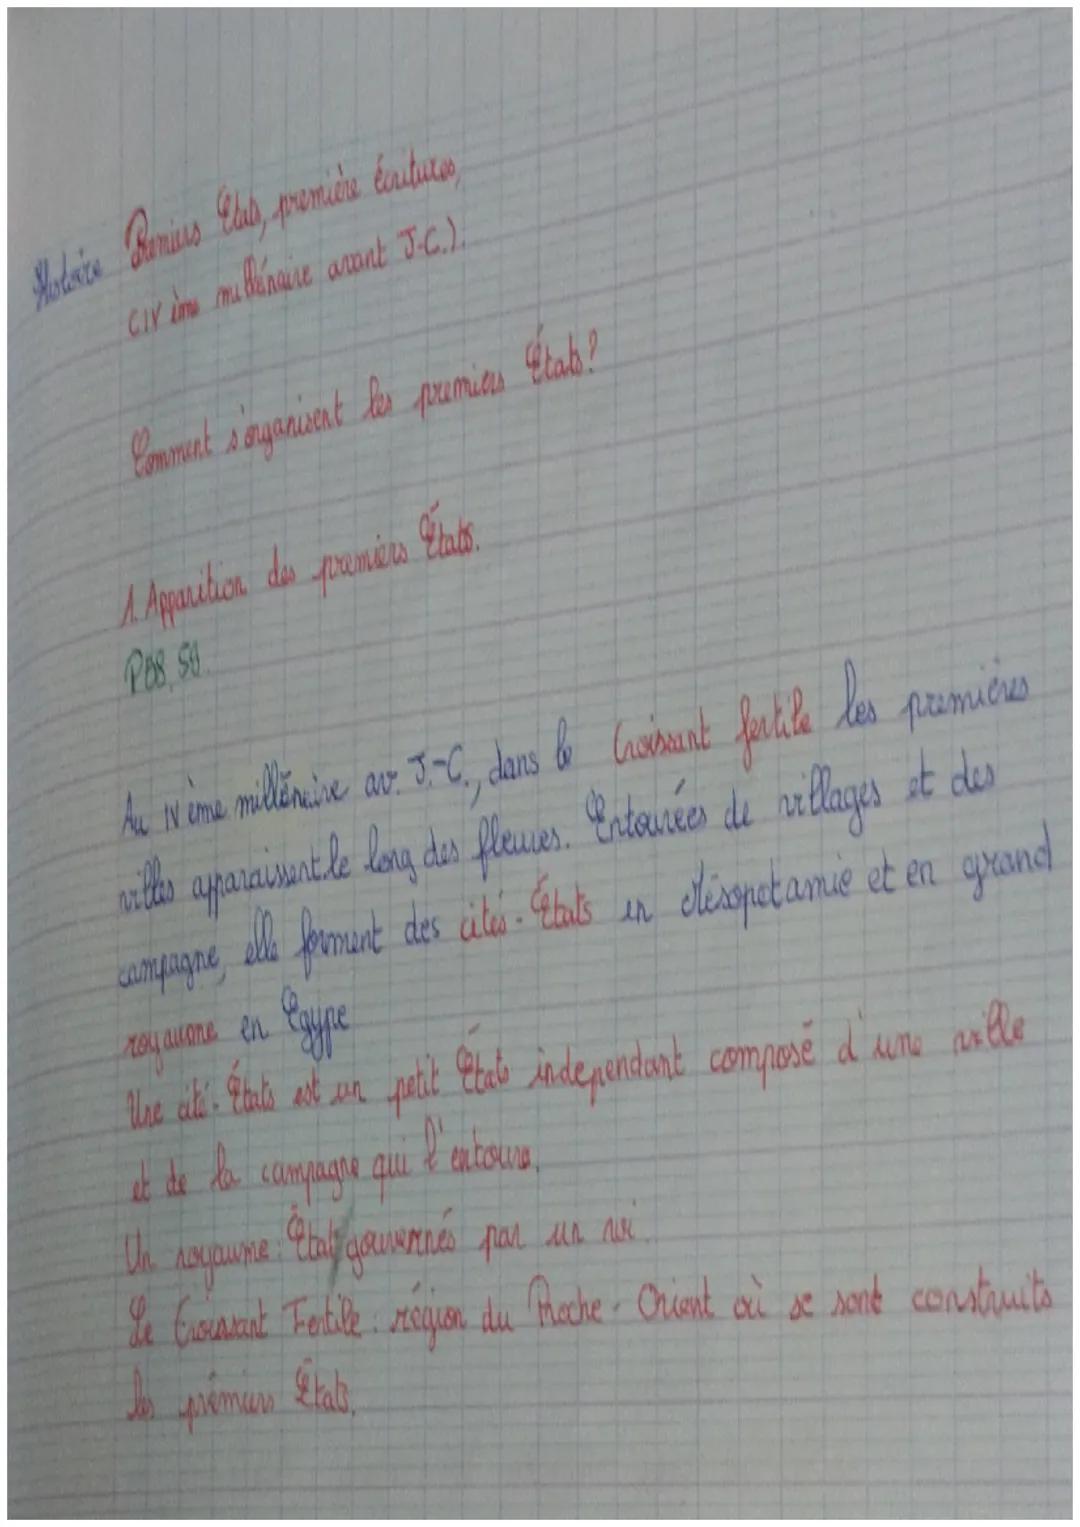 Histoire Premiers États, première écritures,
(IV ème millénaire avant J-C.).
Comment s'organisent les premiers États?
1. Apparition des premiers États.
Au IV ème millénaire av. J.-C., dans le Croissant fertile les premières
villes apparaissent le long des fleuves. Entourées de villages et des
campagne, elle forment des cités-États en Mésopotamie et en grand
royaume en Égype
Une cité-États est un petit États independant composé d'une ville
et de la campagne qui l'entoure.
Un royaume : État gouvernés par un roi.
Le Croissant Fertile : région du Proche-Orient où se sont construits
les prémiers États.